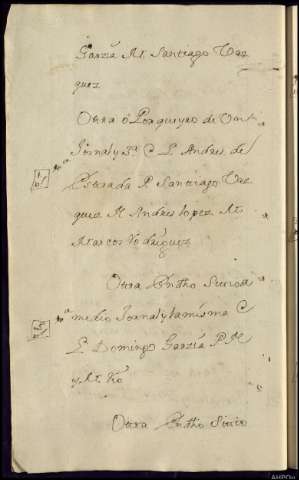 Garzia M. Santiago Vaz
quez
Otra ó Porqueyro de
Jornal y 3ª C L Andres de
Estrada P. Santiago Vaz
quez M Andres lopez At.
Marcos Rodriguez
Otra Enttho Sitio de
medio Jornal y la misma C
L Domingo Garzia P. M
y At.
Otra Enttho Sitio